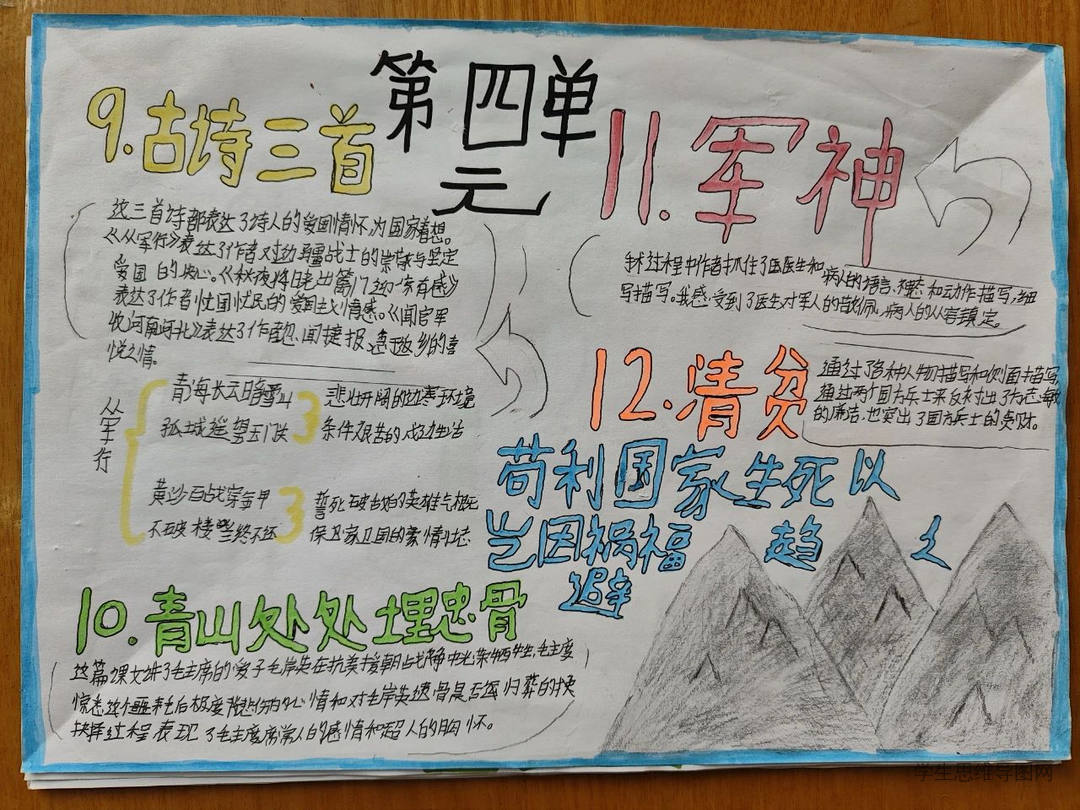 第四单
元
9.古诗三首
这三首诗都表达了诗人的爱国情怀,为国家着想。
《从军行》表达了作者对边疆战士的崇敬与坚定
爱国的决心。《秋夜将晓出篱门迎凉有感》
表达了作者忧国忧民的爱国主义情感。《闻官军
收河南河北》表达了作者 闻捷报,急于故乡的喜
悦之情。
从军行
青海长云暗雪山
孤城遥望玉门关
悲壮开阔的边塞环境
条件艰苦的戍边生活
黄沙百战穿金甲
不破楼兰终不还
誓死破敌的英雄气概
保卫家卫国的豪情壮志
10.青山处处埋忠骨
这篇课文讲了毛主席的爱子毛岸英在抗美援朝战争中光荣牺牲,毛主席
惊悉这个噩耗后极度悲分的心情和对毛岸英遗骨是否 归葬的快
抉择过程,表现了毛主席常人的感情和超人的胸怀。
11.军神
手术过程中作者抓住了医生和病人的语言、神态和动作描写,细
写描写。我感受到了医生对军人的敬佩,病人的从容镇定。
12.清贫
通过了各种人物描写和侧面描写,
通过两个国方兵士来反衬出了方志敏
的廉洁,也突出了国方兵士的贪财。
苟利国家生死以
岂因祸福 趋之
避
学生思维导图网